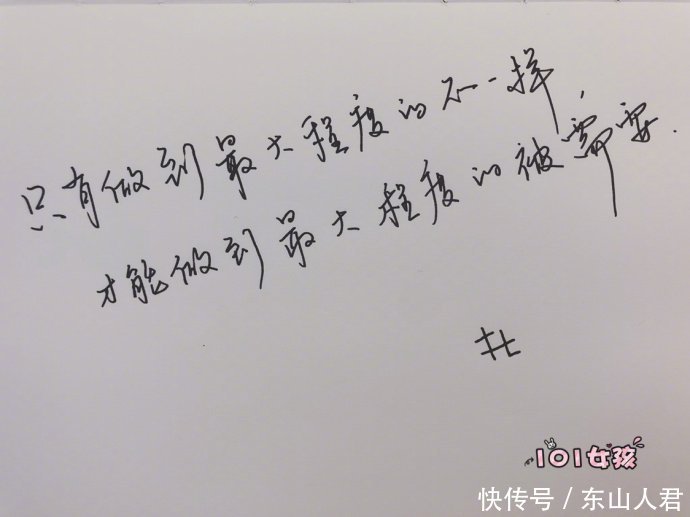 只有做到最大程度的不一样,
才能做到最大程度的被需要.
101女孩
快传号/东山人君